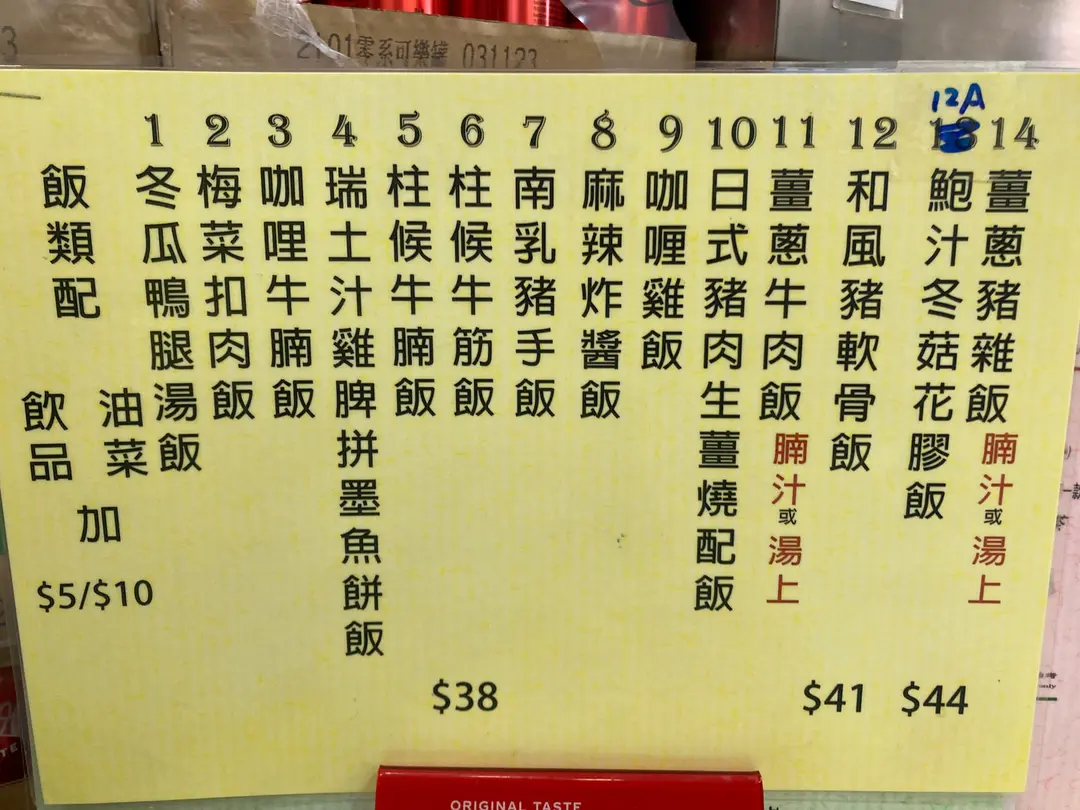 031123
飯類配
飲品
油菜
加
$5/$10
1
冬瓜鴨腿湯飯
2
梅菜扣肉飯
3
咖哩牛腩飯
4
瑞士汁雞脾拼墨魚餅飯
5
柱候牛腩飯
6
柱候牛筋飯
7
南乳豬手飯
8
麻辣炸醬飯
9
咖喱雞飯
10
日式豬肉生薑燒配飯
11
薑蔥牛肉飯腩汁或湯上
12
和風豬軟骨飯
12A
鮑汁冬菇花膠飯
14
薑蔥豬雜飯腩汁或湯上
$38
$41
$44
ORIGINAL TASTE